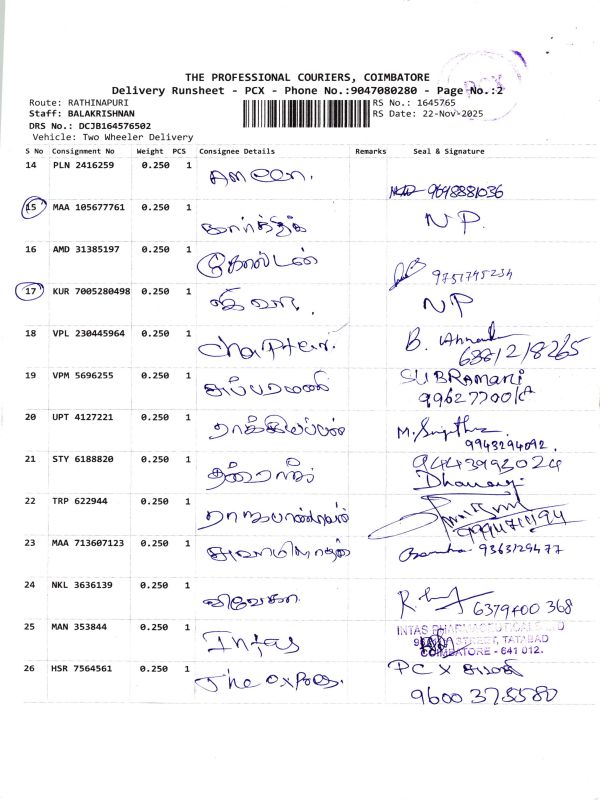 THE PROFESSIONAL COURIERS, COIMBATORE
Delivery Runsheet - PCX - Phone No.:9047080280 - Page No.:2
PCX
Route: RATHINAPURI RS No.: 1645765
Staff: BALAKRISHNAN RS Date: 22-Nov-2025
DRS No.: DCJB164576502
Vehicle: Two Wheeler Delivery
S No Consignment No Weight PCS Consignee Details Remarks Seal & Signature
14 PLN 2416259 0.250 1 Ameen. 9698881036
15 MAA 105677761 0.250 1 கார்த்திக் NP.
16 AMD 31385197 0.250 1 கோல்டன் 9751745234
17 KUR 7005280498 0.250 1 NP
18 VPL 230445964 0.250 1 Chapter. B.
6381218265
19 VPM 5696255 0.250 1 சுப்பரமணி SUBRAMANI
20 UPT 4127221 0.250 1 M.
9943294092.
21 STY 6188820 0.250 1 9443993024
22 TRP 622944 0.250 1
23 MAA 713607123 0.250 1 9363129477
24 NKL 3636139 0.250 1 6379400 368
25 MAN 353844 0.250 1 Intas INTAS PHARMACEUTICALS LTD
STREET, TATABAD
COIMBATORE - 641 012.
26 HSR 7564561 0.250 1 The PCX
9600 378580